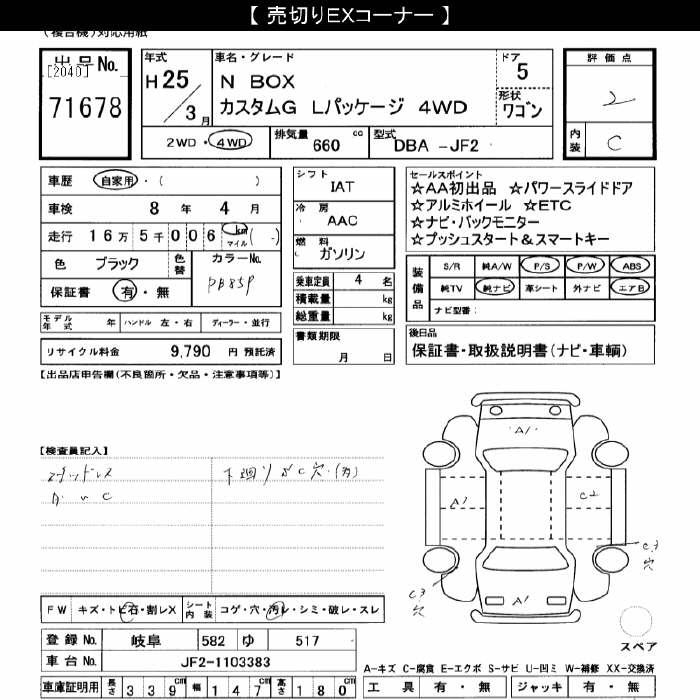 【 売切りEXコーナー 】
(複合機)対応用紙
出品No.
[2040]
71678
年式
H 25
/ 3 月
車名・グレード
N BOX
カスタムG Lパッケージ 4WD
ドア
5
形状
ワゴン
2WD ・ 4WD
排気量 660 cc
型式 DBA -JF2
評価点
2
内装 C
車歴 自家用・( )
車検 8 年 4 月
走行 16万5千006 km マイル ( - )
色 ブラック 色替 カラーNo. PB85P
保証書 有・無
モデル年式 年 ハンドル 左・右 ディーラー・並行
リサイクル料金 9,790 円 預託済
シフト
IAT
冷房
AAC
燃料
ガソリン
乗車定員 4 名
積載量 kg
総重量 kg
書類期限
月 日
セールスポイント
☆AA初出品 ☆パワースライドドア
☆アルミホイール ☆ETC
☆ナビ・バックモニター
☆プッシュスタート&スマートキー
装備品
S/R 純A/W P/S P/W ABS
純TV 純ナビ 革シート 外ナビ エアB
ナビ型番:
後日品
保証書・取扱説明書(ナビ・車輌)
【出品店申告欄(不良箇所・欠品・注意事項等)】
【検査員記入】
下廻りサビC穴(方)
A1
A1
C2
C3
穴
C3
穴
A1
FW キズ・トビ石・割レX シート内装 コゲ・穴・汚レ・シミ・破レ・スレ
登録No. 岐阜 582 ゆ 517
車台No. JF2-1103383
車庫証明用 長さ 339cm 幅 147cm 高さ 180cm
スペア
A-キズ C-腐食 E-エクボ S-サビ U-凹ミ W-補修 XX-交換済
工具 有・無 ジャッキ 有・無